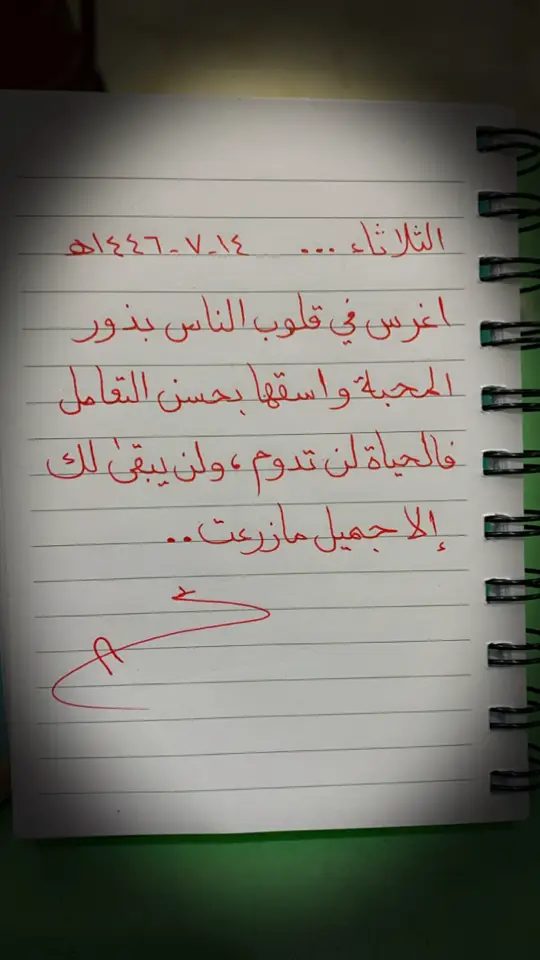 الثلاثاء ... ١٤-٧-١٤٤٦ه
اغرس في قلوب الناس بذور
المحبة واسقها بحسن التعامل
فالحياة لن تدوم، ولن يبقىٰ لك
إلا جميل مازرعت..